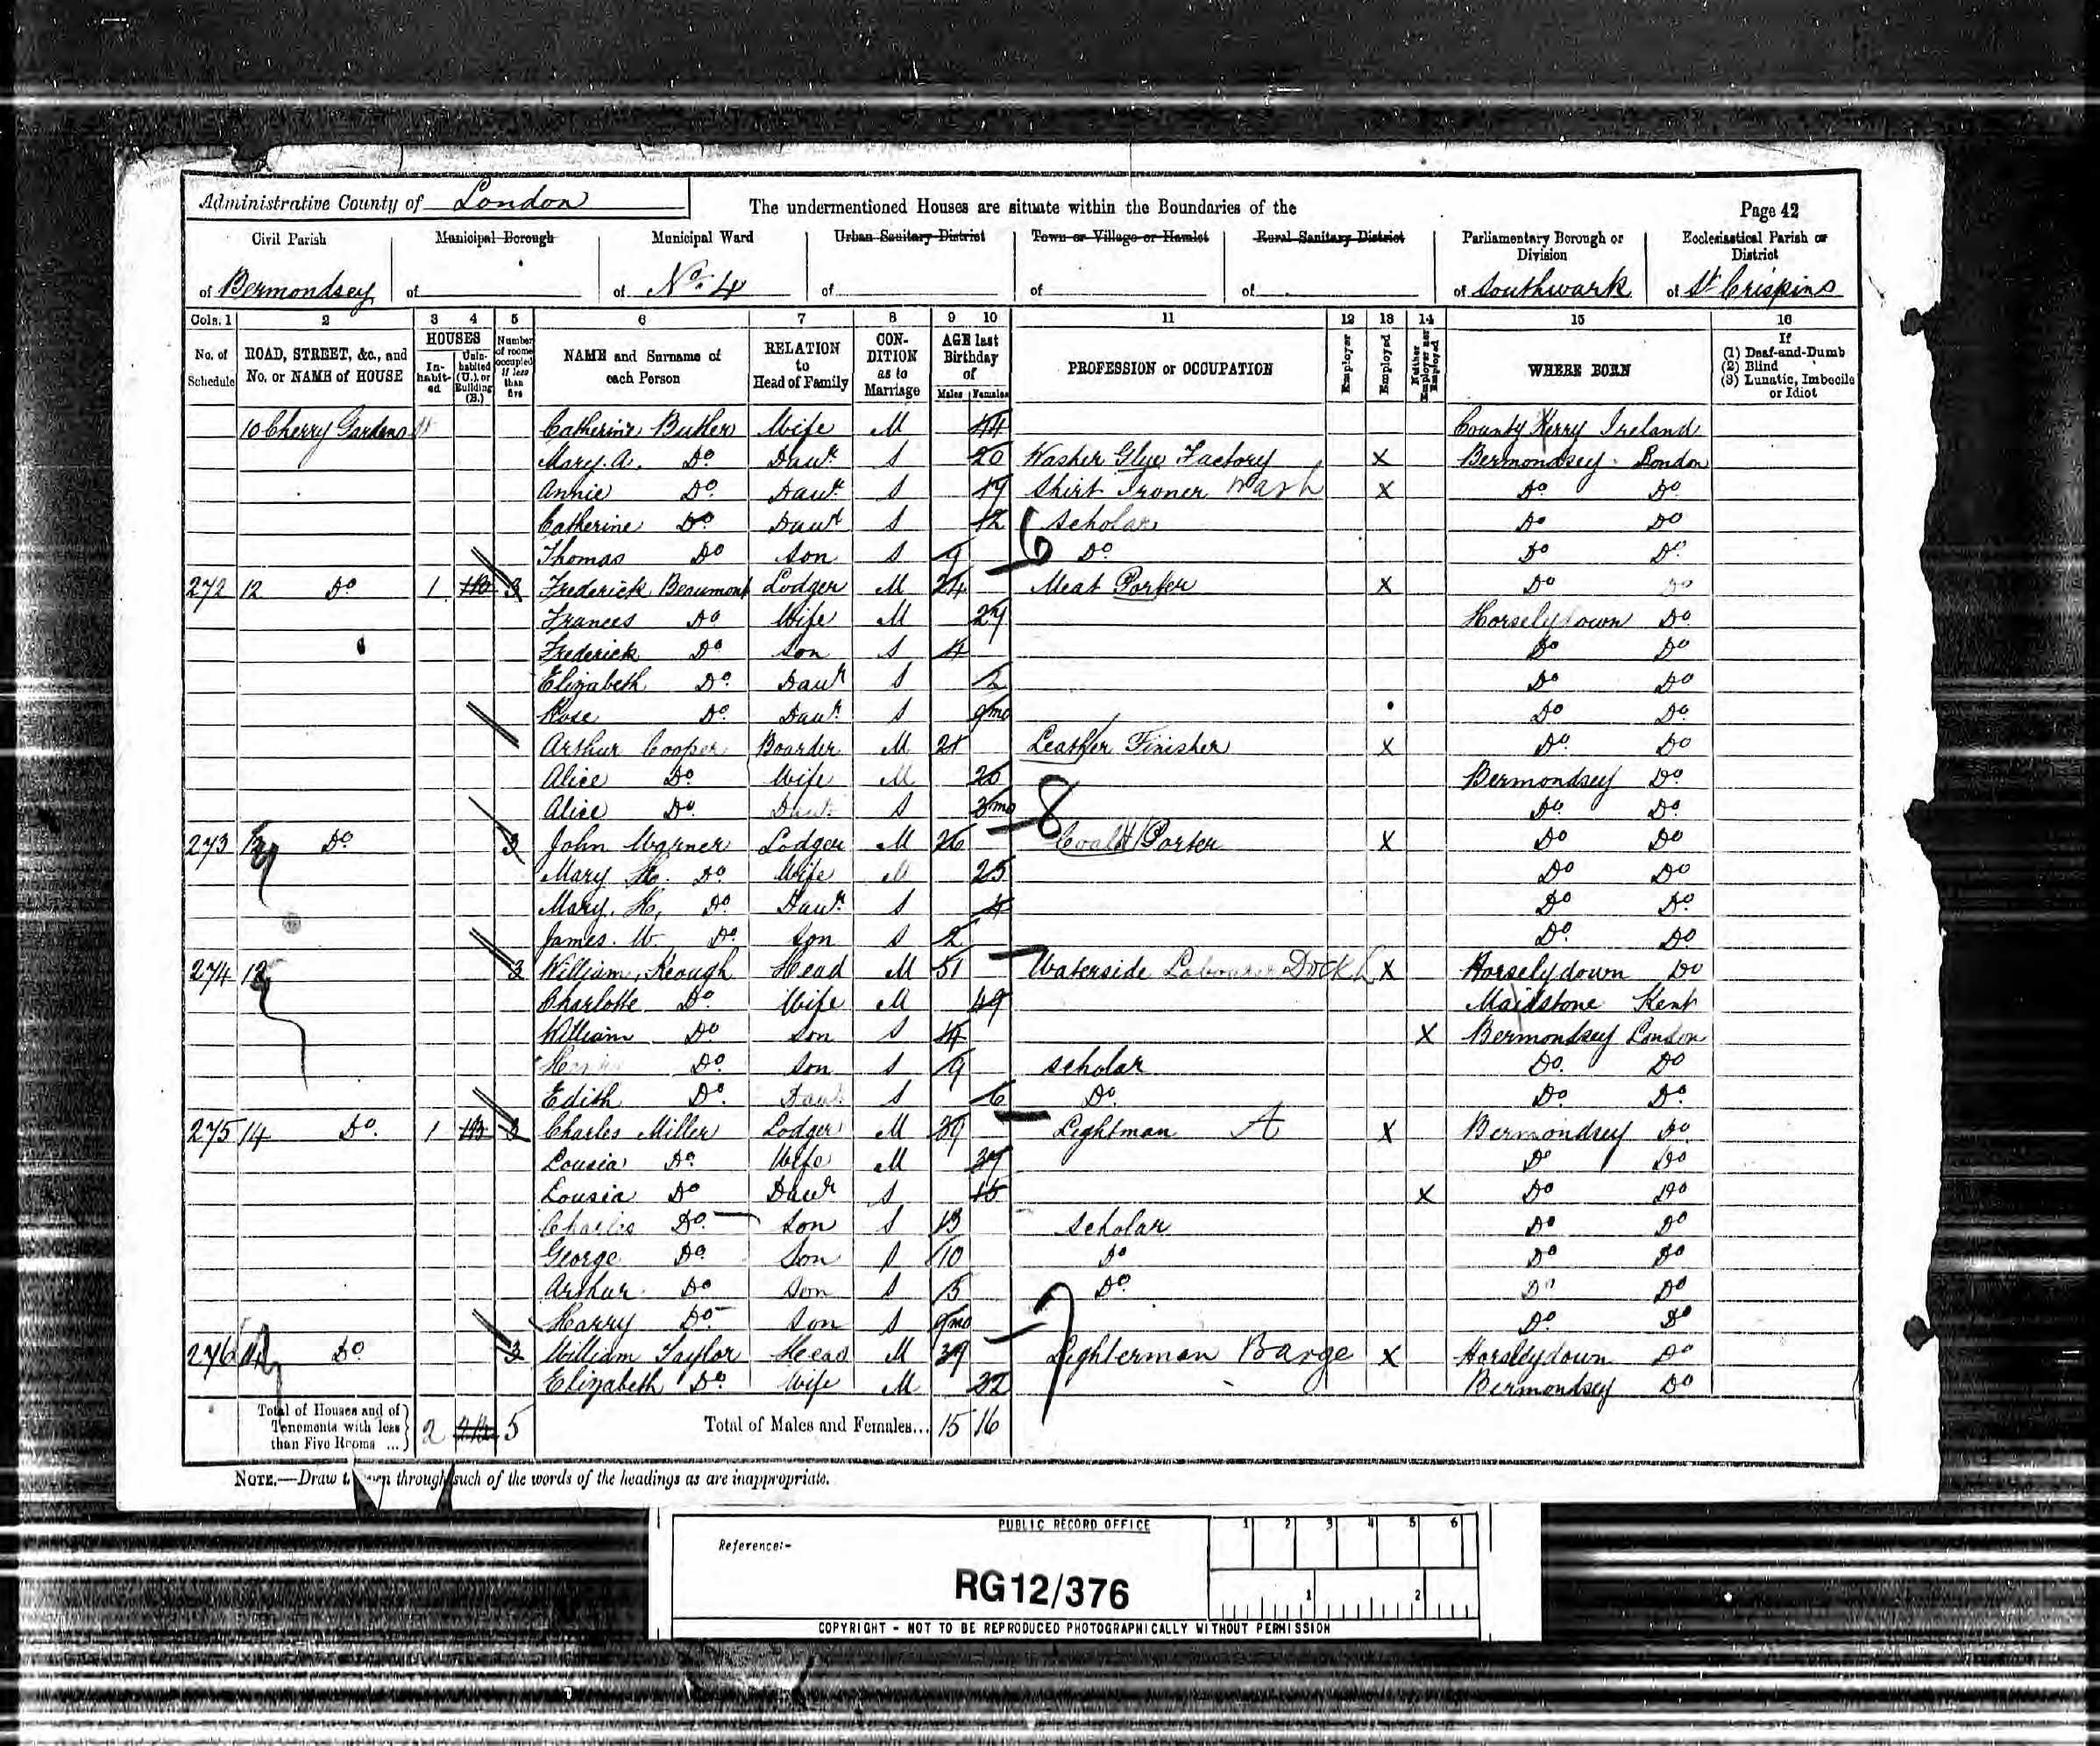 Administrative County of London
The undermentioned Houses are situate within the Boundaries of the
Page 42
Civil Parish
of Bermondsey
Municipal Borough
of
Municipal Ward
of No. 4
Urban Sanitary District
of
Town or Village or Hamlet
of
Rural Sanitary District
of
Parliamentary Borough or Division
of Southwark
Ecclesiastical Parish or District
of St Crispins
Cols. 1 2 3 4 5 6 7 8 9 10 11 12 13 14 15 16
No. of Schedule
ROAD, STREET, &c., and No. or NAME of HOUSE
HOUSES
In-habit-ed
Unin-habited (U.), or Building (B.)
Number of rooms occupied if less than five
NAME and Surname of each Person
RELATION to Head of Family
CON-DITION as to Marriage
AGE last Birthday of
Males Females
PROFESSION or OCCUPATION
Employer
Employed
Neither Employer nor Employed
WHERE BORN
If
(1) Deaf-and-Dumb
(2) Blind
(3) Lunatic, Imbecile or Idiot
10 Cherry Gardens St Catherine Butler Wife M 44 County Kerry Ireland
Mary. A. Do Daur S 20 Washer Glye Factory X Bermondsey London
Annie Do Daur S 17 Shirt Ironer Wash X Do Do
Catherine Do Daur S 12 Scholar Do Do
Thomas Do Son S 9 6 Do Do Do
272 12 Do 1 3 Frederick Beaumont Lodger M 24 Meat Porter X Do Do
Frances Do Wife M 27 Horselydown Do
Frederick Do Son S 4 Do Do
Elizabeth Do Daur S 2 Do Do
Rose Do Daur S 9mo Do Do
Arthur Cooper Boarder M 21 Leather Finisher X Do Do
Alice Do Wife M 20 Bermondsey Do
Alice Do Daur S 3mo 8 Do Do
273 12 Do 3 John Warner Lodger M 26 Coal Porter X Do Do
Mary Do Wife M 25 Do Do
Mary. H. Do Daur S 4 Do Do
James. W Do Son S 2 Do Do
274 12 3 William Keough Head M 51 Waterside Labourer Dock L X Horselydown Do
Charlotte Do Wife M 49 Maidstone Kent
William Do Son S 14 X Bermondsey London
Do Son S 9 scholar Do Do
Edith Do Daur S 6 Do Do Do
275 14 Do 1 3 Charles Miller Lodger M 39 Lightman A X Bermondsey Do
Lousia Do Wife M 37 Do Do
Lousia Do Daur S 15 X Do Do
Charles Do Son S 13 Scholar Do Do
George Do Son S 10 Do Do Do
Arthur Do Son S 5 Do Do Do
Harry Do Son S 9mo 7 Do Do
276 14 Do 3 William Taylor Head M 39 Lighterman Barge X Horselydown Do
Elizabeth Do Wife M 32 Bermondsey Do
Total of Houses and of Tenements with less than Five Rooms ... 2 5 Total of Males and Females... 15 16
NOTE.—Draw through such of the words of the headings as are inappropriate.
PUBLIC RECORD OFFICE
1 2 3 4 5 6
Reference:-
RG12/376
1 2
COPYRIGHT - NOT TO BE REPRODUCED PHOTOGRAPHICALLY WITHOUT PERMISSION